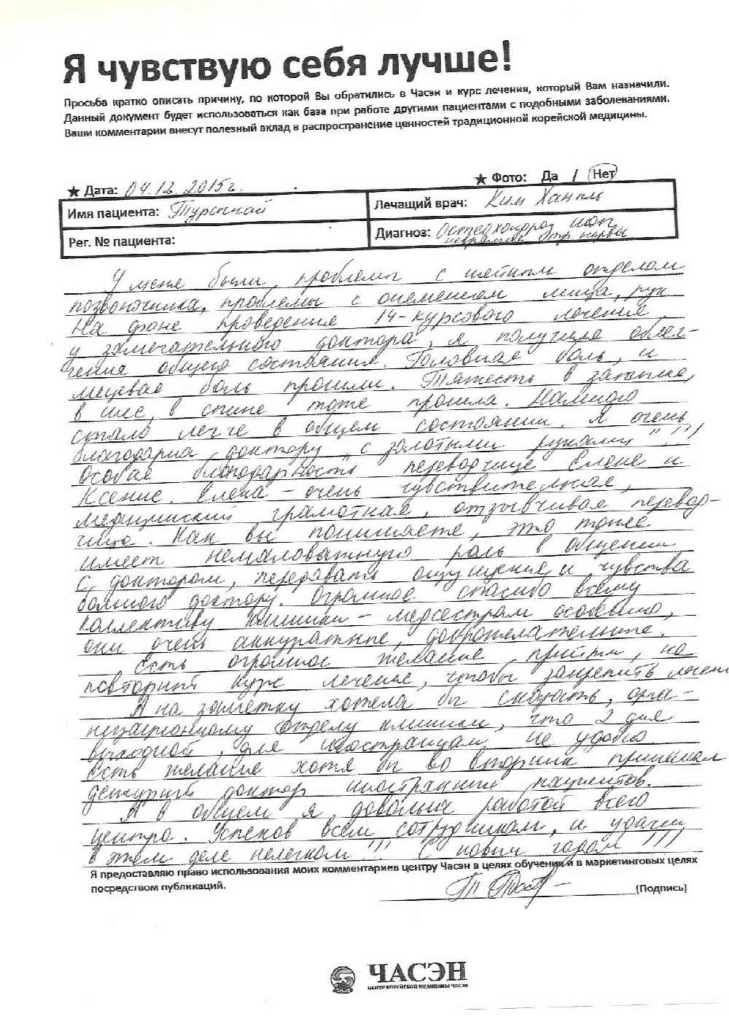 Я чувствую себя лучше!
Просьба кратко описать причину, по которой Вы обратились в Часэн и курс лечения, который Вам назначили.
Данный документ будет использоваться как база при работе другими пациентами с подобными заболеваниями.
Ваши комментарии внесут полезный вклад в распространение ценностей традиционной корейской медицины.
★ Дата: 04.12.2015г.
★ Фото: Да / Нет
Имя пациента: Турсынай
Лечащий врач: Ким Ханиль
Рег. № пациента:
Диагноз: Остеохондроз шоп
У меня были, проблемы с шейным отделом
позвоночника, проблемы с онемением лица, рук
На фоне проведения 14-курсового лечения
у замечательного доктора, я получила облег-
чения общего состояния. Головная боль, и
лицевая боль прошли. Тяжесть в затылке,
в шее, в спине тоже прошла. Намного
стало легче в общем состоянии. Я очень
благодарна доктору "с золотыми руками"!!!
Особая благодарность переводчице Елене и
Ксение. Елена - очень чувствительная,
медицинский грамотная, отзывчивая перевод-
чица. Как вы понимаете, это тоже
имеет немаловажную роль в общении
с доктором, передавать ощущение и чувства
больного доктору. Огромное спасибо всему
коллективу клиники - медсестрам особенно,
они очень аккуратные, доброжелательные.
Есть огромное желание прийти, на
повторный курс лечение, чтобы закрепить лечен
А на заметку хотела бы сказать, орга-
низационному отделу клиники, что 2 дня
выходной, для иностранцам не удобно
Есть желание хотя бы во вторник принимал
дежурный доктор иностранных пациентов.
А в общем я довольна работой всего
центра. Успехов всем сотрудникам, и удачи
в этом деле нелегком!!! С новым годом!!!!
Я предоставляю право использования моих комментариев центру Часэн в целях обучения и в маркетинговых целях
посредством публикаций.
(Подпись)
ЧАСЭН
ЦЕНТР КОРЕЙСКОЙ МЕДИЦИНЫ ЧАСЭН